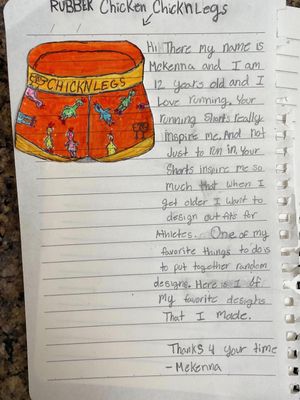 RUBBER Chicken ChicknLegs
CHICKNLEGS
Hi There my name is
Mckenna and I am
12 years old and I
Love running. Your
running shorts really
inspire me. And not
Just to run in, Your
Shorts inspire me so
much that when I
get older I want to
design outfits for
Athletes. One of my
favorite things to do is
to put together random
designs. Here is 1 of
My favorite designs
That I made.
Thanks 4 your time
- Mckenna